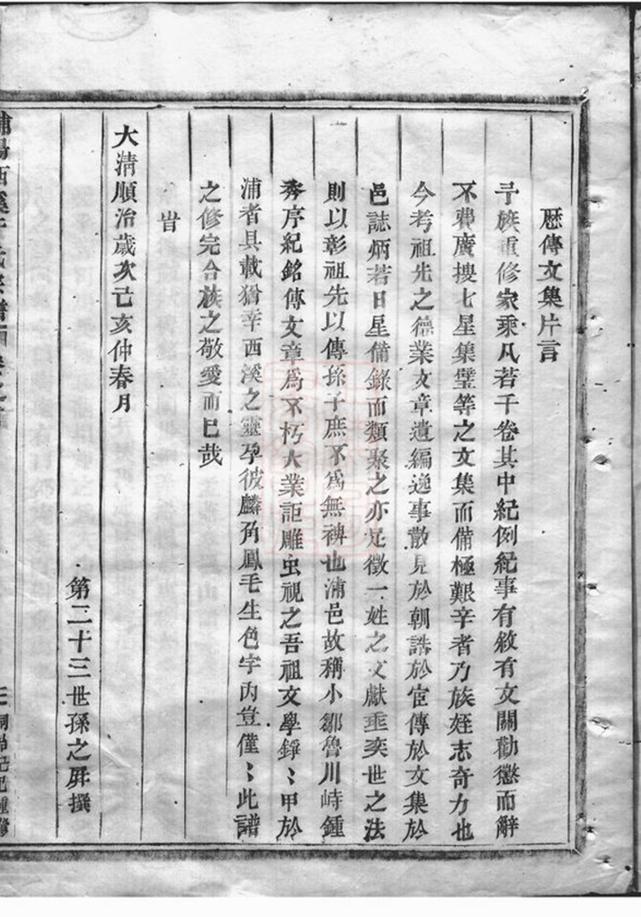 歷傳文集片言
予族重修家乘凡若干卷其中紀例紀事有敘有文關勸懲而辭
不費廣搜七星集璧等之文集而備極艱辛者乃族姪志奇力也
今考祖先之德業文章遺編逸事散見於朝誥於宦傳於文集於
邑誌炳若日星備錄而類聚之亦足徵一姓之文獻垂奕世之法
則以彰祖先以傳孫子庶不爲無裨也浦邑故稱小鄒魯川峙鍾
秀序紀銘傳文章爲不朽大業詎雕虫視之吾祖文學錚〻甲於
浦者具載猶幸西溪之靈孕彼麟角鳳毛生色字內豈僅〻此譜
之修完合族之敬愛而已哉
旹
大淸順治歲次己亥仲春月
第二十三世孫之屏撰